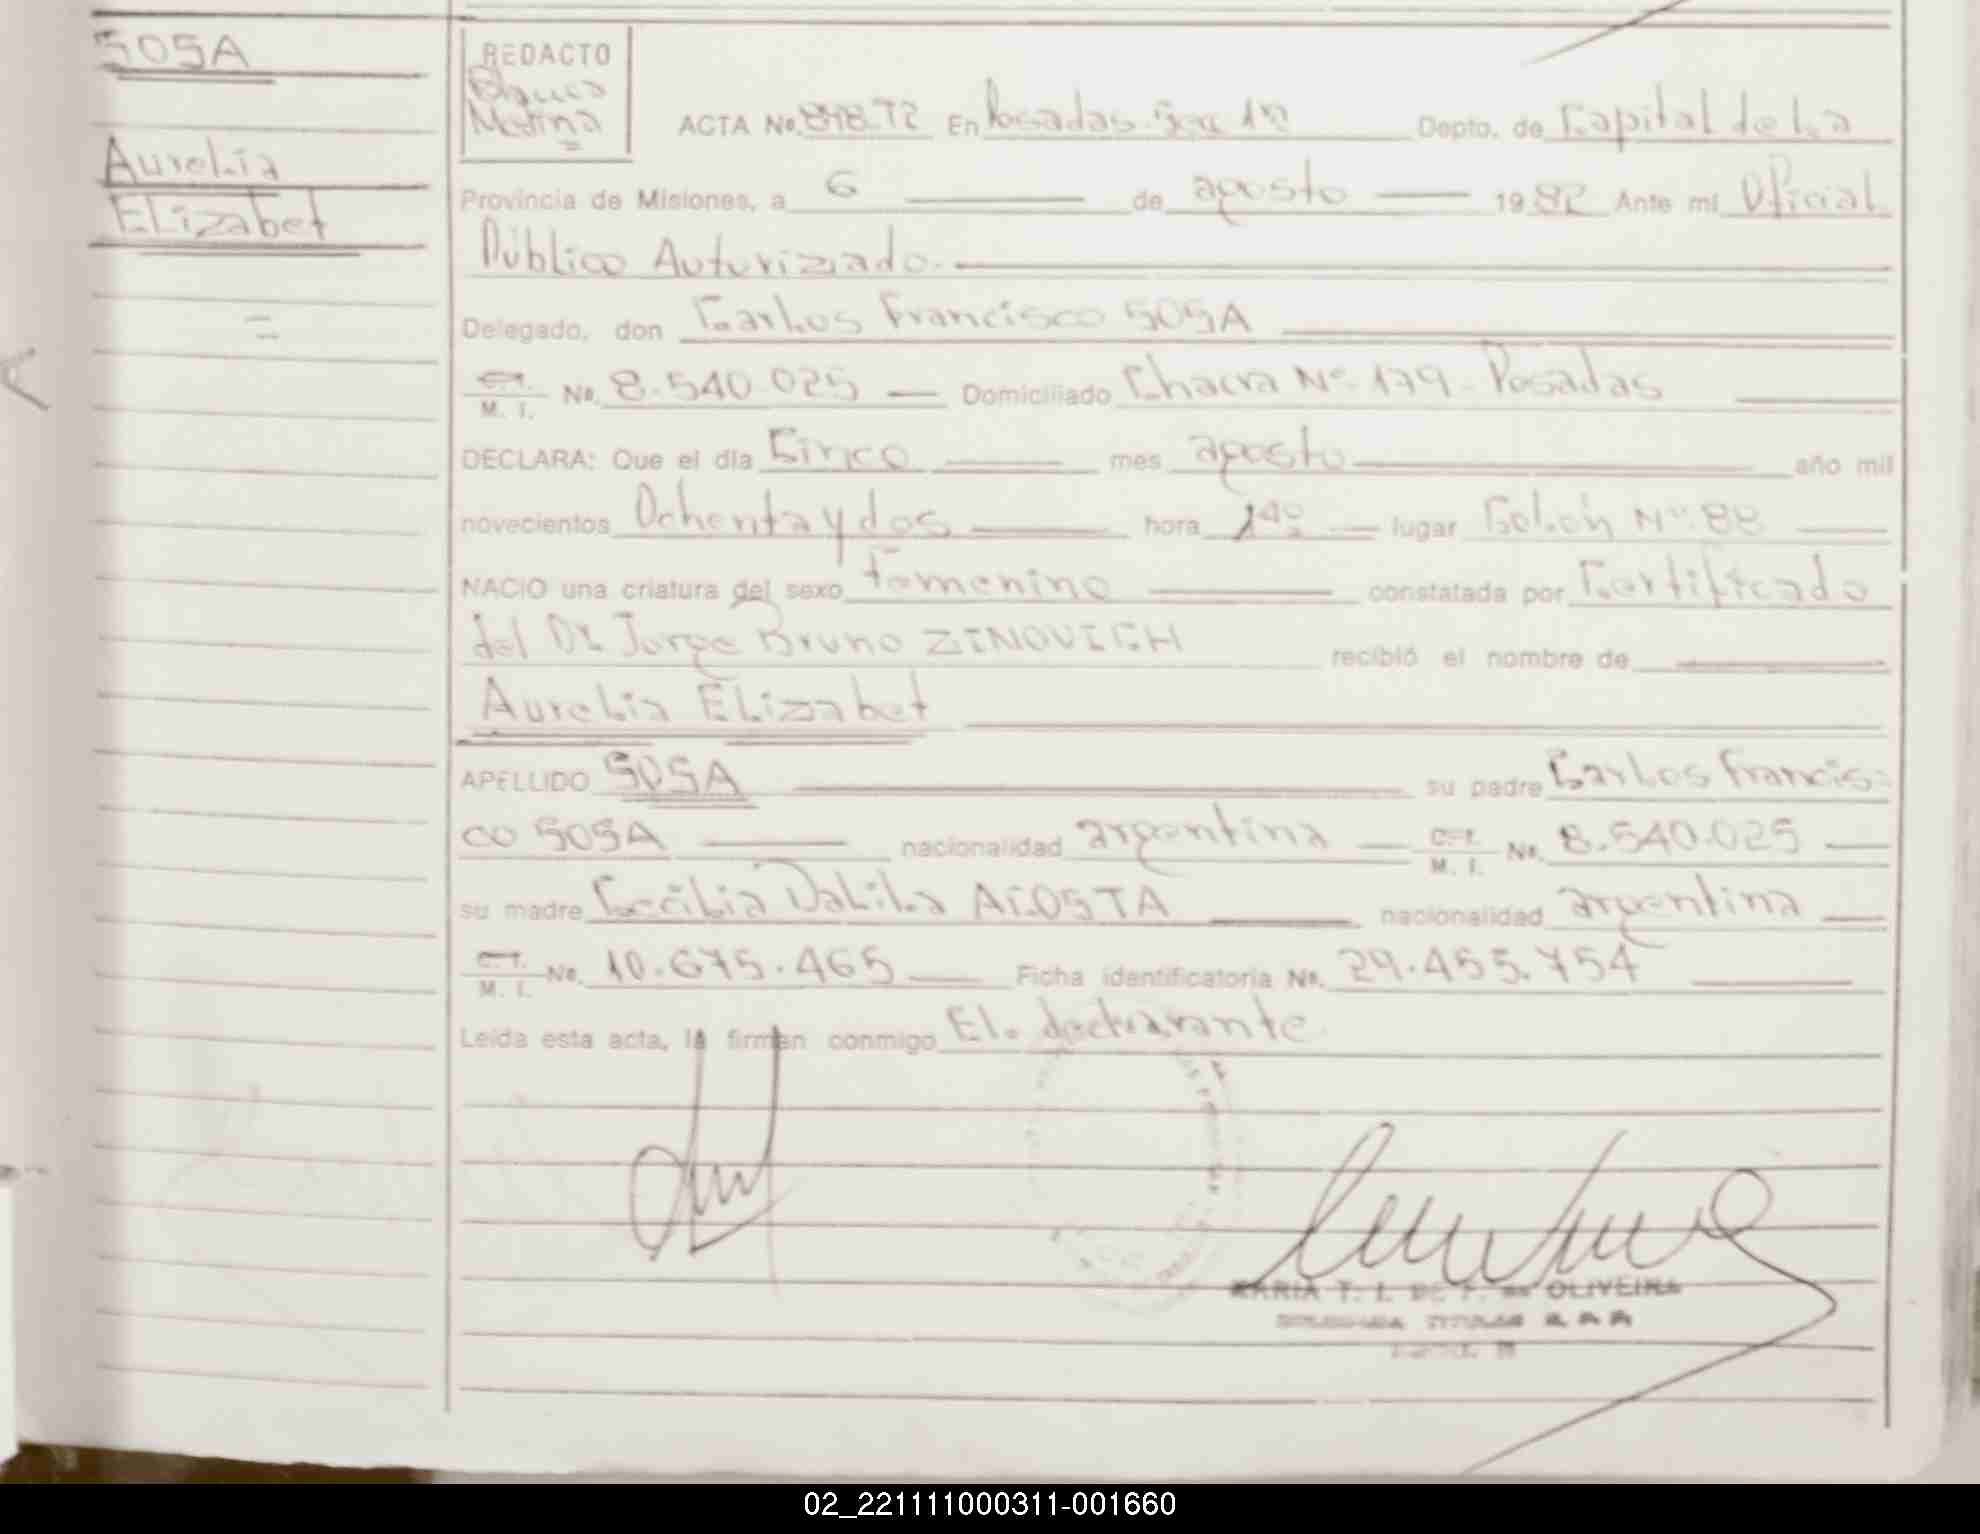 SOSA
Aurelia
Elizabet
=
REDACTO
Blanca
Medina
=
ACTA No. 848.T2 En Posadas. Secc 1ª Depto. de Capital de La
Provincia de Misiones, a 6 de agosto 1982 Ante mi Oficial
Público Autorizado.
Delegado, don Carlos Francisco SOSA
C.I. M. I. No. 8.540.025 Domiciliado Chacra Nº 179 - Posadas
DECLARA: Que el dia Cinco mes agosto año mil
novecientos Ochenta y dos hora lugar Colón Nº 88
NACIO una criatura del sexo Femenino constatada por Certificado
del Dr. Jorge Bruno ZINOVICH recibió el nombre de
Aurelia Elizabet
APELLIDO SOSA su padre Carlos Francis-
co SOSA nacionalidad argentina C.I. M. I. No. 8.540.025
su madre Cecilia Dalila ACOSTA nacionalidad argentina
C.I. M. I. No. 10.675.465 Ficha identificatoria No. 29.455.754
Leida esta acta, la firman conmigo El declarante.
MARIA T. I. DE F. de OLIVEIRA
02_221111000311-001660